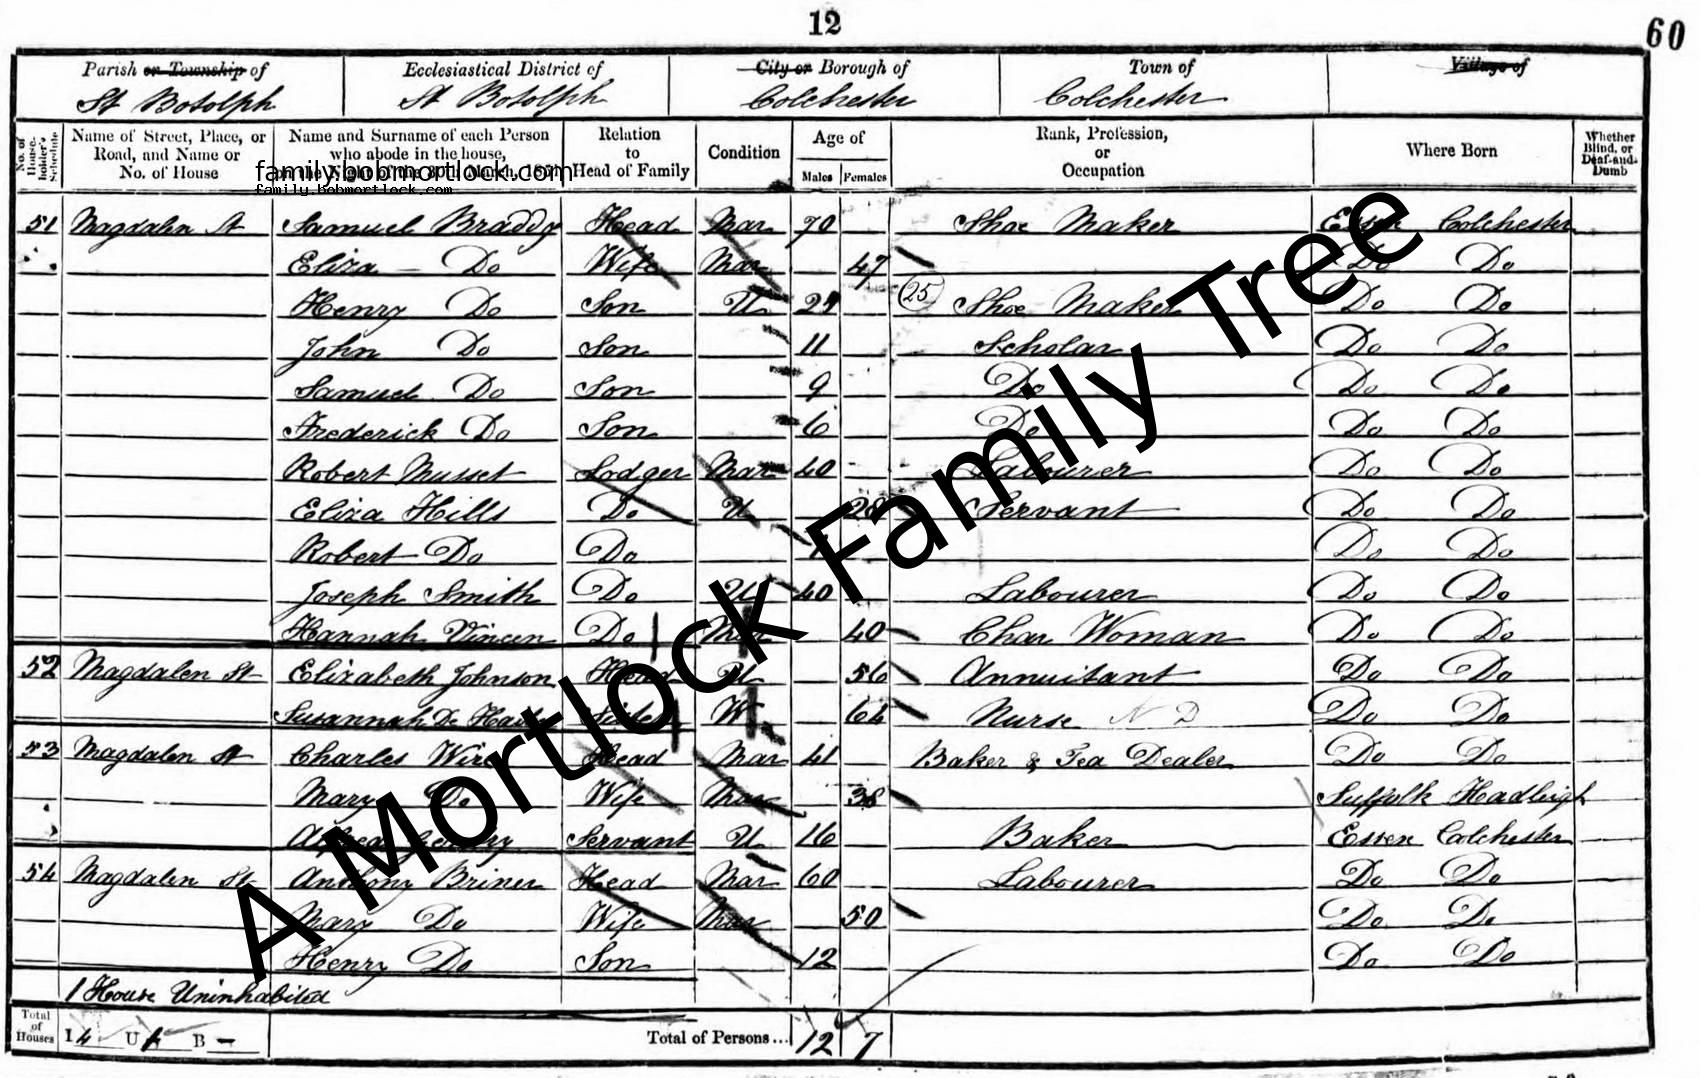 12
60
Parish or Township of
Ecclesiastical District of
City or Borough of
Town of
Village of
St Botolph
St Botolph
Colchester
Colchester
No. of House-holder's Schedule
Name of Street, Place, or Road, and Name or No. of House
Name and Surname of each Person who abode in the house,
Relation to Head of Family
Condition
Age of
Males Females
Rank, Profession, or Occupation
Where Born
Whether Blind, or Deaf-and-Dumb
family.bobmortlock.com
family.bobmortlock.com
51 Magdalen St Samuel Braddy Head Mar 70 Shoe Maker Essex Colchester
Eliza Do Wife Mar 47 Do Do
Henry Do Son U 24 (25) Shoe Maker Do Do
John Do Son 11 Scholar Do Do
Samuel Do Son 9 Do Do Do
Frederick Do Son 6 Do Do Do
Robert Musset Lodger Mar 40 Labourer Do Do
Eliza Hills Do U 28 Servant Do Do
Robert Do Do Do Do
Joseph Smith Do U 40 Labourer Do Do
Hannah Vincen Do Mar 40 Char Woman Do Do
52 Magdalen St Elizabeth Johnson Head U 56 Annuitant Do Do
Susannah De W 64 Nurse N D Do Do
53 Magdalen St Charles Wire Head Mar 41 Baker & Tea Dealer Do Do
Mary Do Wife Mar 38 Suffolk Hadleigh
Servant U 16 Baker Essex Colchester
54 Magdalen St Anthony Briner Head Mar 60 Labourer Do Do
Mary Do Wife Mar 50 Do Do
Henry Do Son 12 Do Do
1 House Uninhabited
Total of Houses I 4 U 1 B - Total of Persons... 12 7
A Mortlock Family Tree